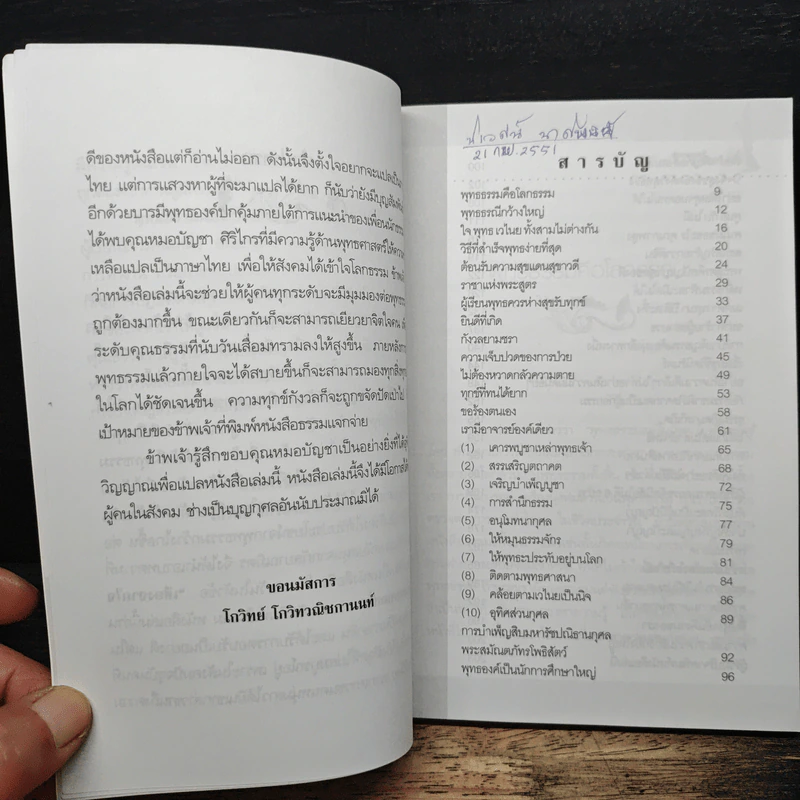 ดีของหนังสือแต่ก็อ่านไม่ออก ดังนั้นจึงตั้งใจอยากจะแปลเป็น
ไทย แต่การแสวงหาผู้ที่จะมาแปลได้ยาก ก็นับว่ายังมีบุญสัมพันธ์
อีกด้วยบารมีพุทธองค์ปกคุ้มภายใต้การแนะนำของเพื่อนนักธรรม
ได้พบคุณหมอบัญชา ศิริไกรที่มีความรู้ด้านพุทธศาสตร์ให้ความ
เหลือแปลเป็นภาษาไทย เพื่อให้สังคมได้เข้าใจโลกธรรม
ว่าหนังสือเล่มนี้จะช่วยให้ผู้คนทุกระดับจะมีมุมมองต่อ
ถูกต้องมากขึ้น ขณะเดียวกันก็จะสามารถเยียวยาจิตใจคน
ระดับคุณธรรมที่นับวันเสื่อมทรามลงให้สูงขึ้น ภายหลัง
พุทธธรรมแล้วกายใจจะได้สบายขึ้นก็จะสามารถมองทุกสิ่ง
ในโลกได้ชัดเจนขึ้น ความทุกข์กังวลก็จะถูกขจัดปัดเป่าไป
เป้าหมายของข้าพเจ้าที่พิมพ์หนังสือธรรมแจกจ่าย
ข้าพเจ้ารู้สึกขอบคุณหมอบัญชาเป็นอย่างยิ่งที่ได้
วิญญาณเพื่อแปลหนังสือเล่มนี้ หนังสือเล่มนี้จึงได้มีโอกาส
ผู้คนในสังคม ช่างเป็นบุญกุศลอันนับประมาณมิได้
ขอนมัสการ
โกวิทย์ โกวิทวณิชกานนท์
21 กย. 2551
สารบัญ
พุทธธรรมคือโลกธรรม 9
พุทธธรณีกว้างใหญ่ 12
ใจ พุทธ เวไนย ทั้งสามไม่ต่างกัน 16
วิธีที่สำเร็จพุทธง่ายที่สุด 20
ต้อนรับความสุขแดนสุขาวดี 24
ราชาแห่งพระสูตร 29
ผู้เรียนพุทธควรห่างสุขรับทุกข์ 33
ยินดีที่เกิด 37
กังวลยามชรา 41
ความเจ็บปวดของการป่วย 45
ไม่ต้องหวาดกลัวความตาย 49
ทุกข์ที่ทนได้ยาก 53
ขอร้องตนเอง 58
เรามีอาจารย์องค์เดียว 61
(1) เคารพบูชาเหล่าพุทธเจ้า 65
(2) สรรเสริญตถาคต 68
(3) เจริญบำเพ็ญบูชา 72
(4) การสำนึกธรรม 75
(5) อนุโมทนากุศล 77
(6) ให้หมุนธรรมจักร 79
(7) ให้พุทธะประทับอยู่บนโลก 81
(8) ติดตามพุทธศาสนา 84
(9) คล้อยตามเวไนยเป็นนิจ 86
(10) อุทิศส่วนกุศล 89
การบำเพ็ญสิบมหารัชปณิธานกุศล
พระสมัณตภัทรโพธิสัตว์ 92
พุทธองค์เป็นนักการศึกษาใหญ่ 96